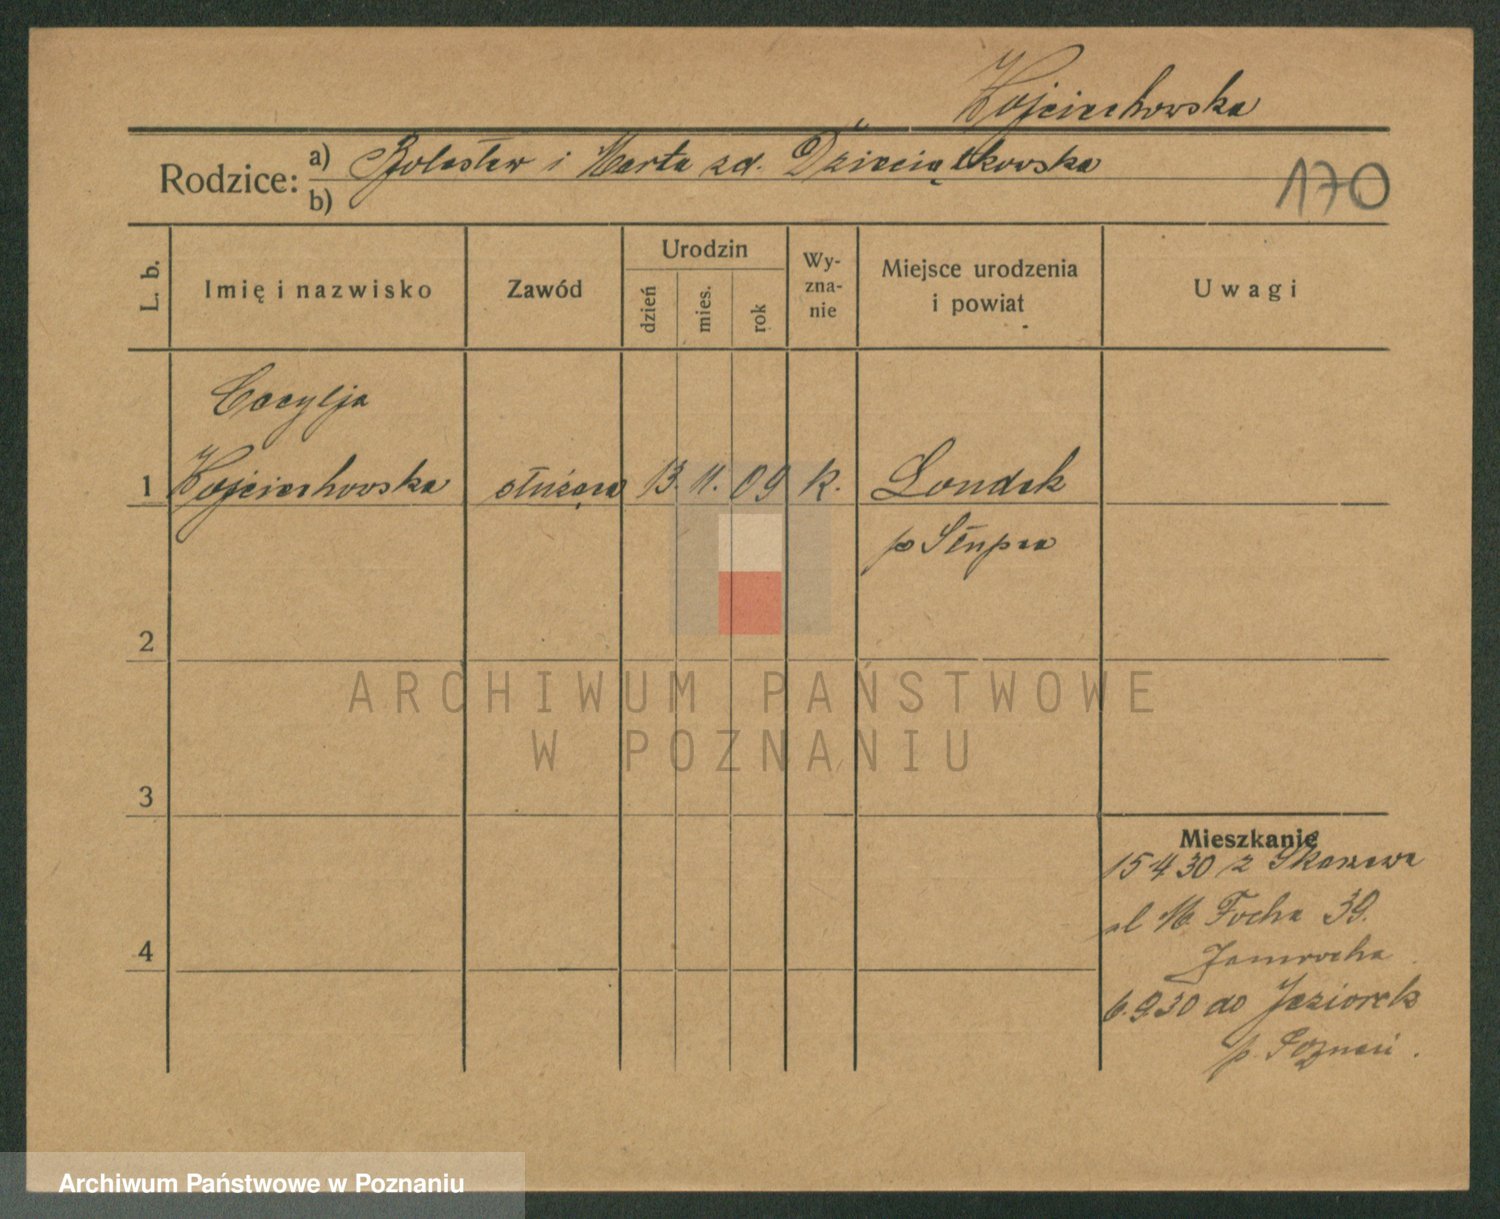 Wojciechowska
Rodzice: a) Bolesław i Marta zd. Dzieciątkowska
b)
170
L. b.
Imię i nazwisko
Zawód
Urodzin
dzień
mies.
rok
Wy-
zna-
nie
Miejsce urodzenia
i powiat
Uwagi
Cecylja
1 Wojciechowska służąca 13. 11. 09 k. Londek
p Słupca
2
3
4
Mieszkanie
15 4 30 z
ul M. Focha 39.
Jamrocha
6.9 30 do Jeziorek
p. Poznań.
ARCHIWUM PAŃSTWOWE
W POZNANIU
Archiwum Państwowe w Poznaniu